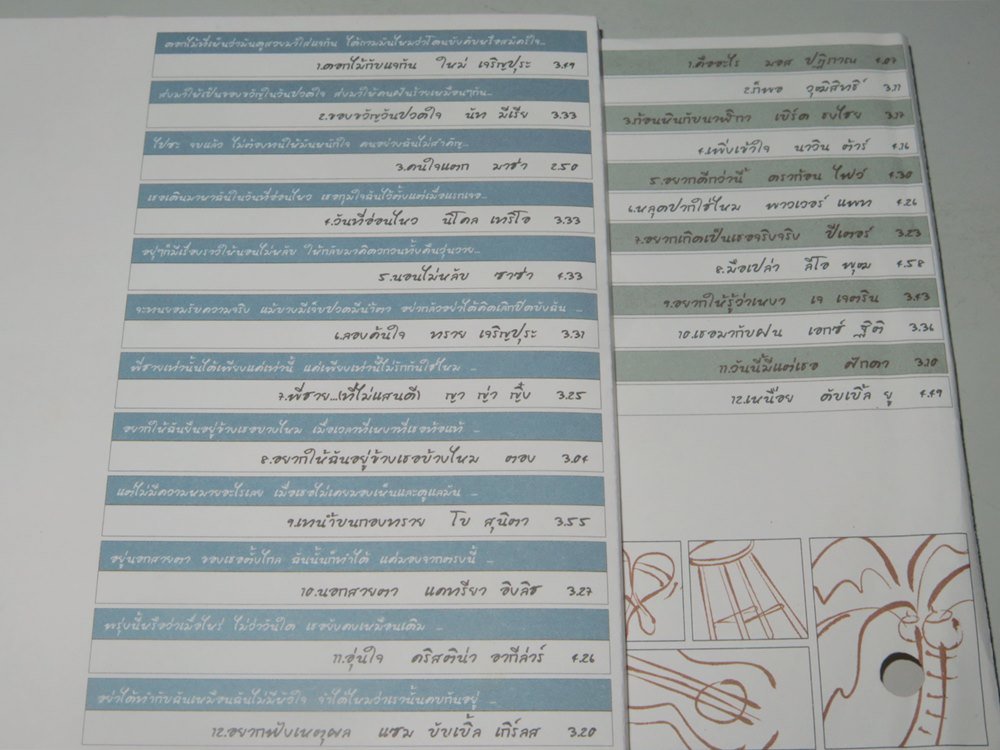 ดอกไม้ที่เห็นว่ามันดูสวยมาใส่แจกัน ได้ถามมันไหมว่าโดนบังคับหรือสมัครใจ...
1.ดอกไม้กับแจกัน ใหม่ เจริญปุระ 3.49
ส่งมาให้เป็นของขวัญในวันปวดใจ ส่งมาให้คนฝันร้ายเหมือนกัน...
2.ของขวัญวันปวดใจ นัท มีเรีย 3.33
ไปซะ จบแล้ว ไม่ต้องทนให้มันหนักใจ คนอย่างฉันไม่สำคัญ...
3.คนใจแตก มาช่า 2.50
เธอเดินมาหาฉันในวันที่อ่อนไหว เธอกุมใจฉันไว้ตั้งแต่เมื่อแรกเจอ...
4.วันที่อ่อนไหว นิโคล เทริโอ 3.33
อยู่ๆก็มีเรื่องราวให้นอนไม่หลับ ให้กลับมาคิดวกวนทั้งคืนวุ่นวาย...
5.นอนไม่หลับ ซาซ่า 4.33
จะทนยอมรับความจริง แม้บางมีเจ็บปวดมีน้ำตา อย่ากลัวอย่าได้คิดเลิกปิดบังฉัน
6.ลองค้นใจ ทราย เจริญปุระ 3.31
พี่ชายเท่านั้นได้เพียงแค่เท่านี้ แค่เพียงเท่านี้ไม่รักกันใช่ไหม ...
7.พี่ชาย...(ที่ไม่แสนดี) ญา ญ่า ญิ๋ง 3.25
อยากให้ฉันยืนอยู่ข้างเธอบ้างไหม เมื่อเวลาที่เหงาที่เธอท้อแท้ ...
8.อยากให้ฉันอยู่ข้างเธอบ้างไหม ตอง 3.04
แต่ไม่มีความหมายอะไรเลย เมื่อเธอไม่เคยมองเห็นและดูแลมัน ...
9.เทน้ำบนกองทราย โบ สุนิตา 3.55
อยู่นอกสายตา ของเธอตั้งไกล ฉันนั้นก็ทำได้ แค่มองจากตรงนี้ ...
10.นอกสายตา แคทรียา อิงลิช 3.27
พรุ่งนี้หรือว่าเมื่อไหร่ ไม่ว่าวันใด เธอยังคงเหมือนเดิม
11.อุ่นใจ คริสติน่า อากีล่าร์ 4.26
อย่าได้ทำกับฉันเหมือนฉันไม่มีหัวใจ จำได้ไหมว่าเรานั้นคบกันอยู่ ...
12.อยากฟังเหตุผล แซม บับเบิ้ล เกิร์ลส 3.20
1.คืออะไร มอส ปฏิภาณ 4.07
2.ก็พอ วุฒิสิทธิ์ 3.11
3.ก้อนหินกับนาฬิกา เบิร์ด ธงไชย 3.17
4.เพิ่งเข้าใจ นาวิน ต้าร์ 4.16
5.อยากดีกว่านี้ ดราก้อน ไฟว์ 4.30
6.หลุดปากใช่ไหม พาวเวอร์ แพท 4.26
7.อยากเกิดเป็นเธอจริงจริง ปีเตอร์ 3.23
8.มือเปล่า ลีโอ พุฒ 4.58
9.อยากให้รู้ว่าเหงา เจ เจตริน 3.43
10.เธอมากับฝน เอกซ์ ฐิติ 3.36
11.วันนี้มีแต่เธอ ศักดา 3.10
12.เหนื่อย ดับเบิ้ล ยู 4.49